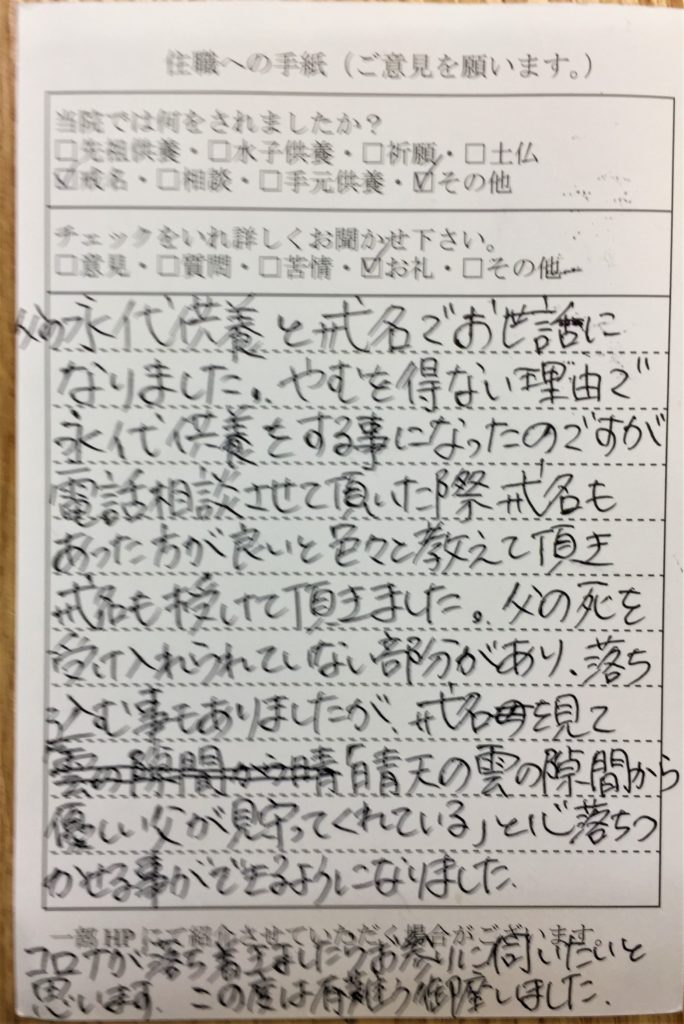 住職への手紙（ご意見を願います。）
当院では何をされましたか？
□先祖供養・□水子供養・□祈願・□土仏
☑戒名・□相談・□手元供養・☑その他
チェックをいれ詳しくお聞かせ下さい。
□意見・□質問・□苦情・☑お礼・□その他
父の永代供養と戒名でお世話に
なりました。やむを得ない理由で
永代供養をする事になったのですが
電話相談させて頂いた際戒名も
あった方が良いと色々と教えて頂き
戒名も授けて頂きました。父の死を
受け入れられていない部分があり、落ち
込む事もありましたが、戒名を見て
「晴天の雲の隙間から
優しい父が見守ってくれている」と心落ちつ
かせる事ができるようになりました。
一部HPにて紹介させていただく場合がございます。
コロナが落ち着きましたらお参りに伺いたいと
思います。この度は有難う御座いました。